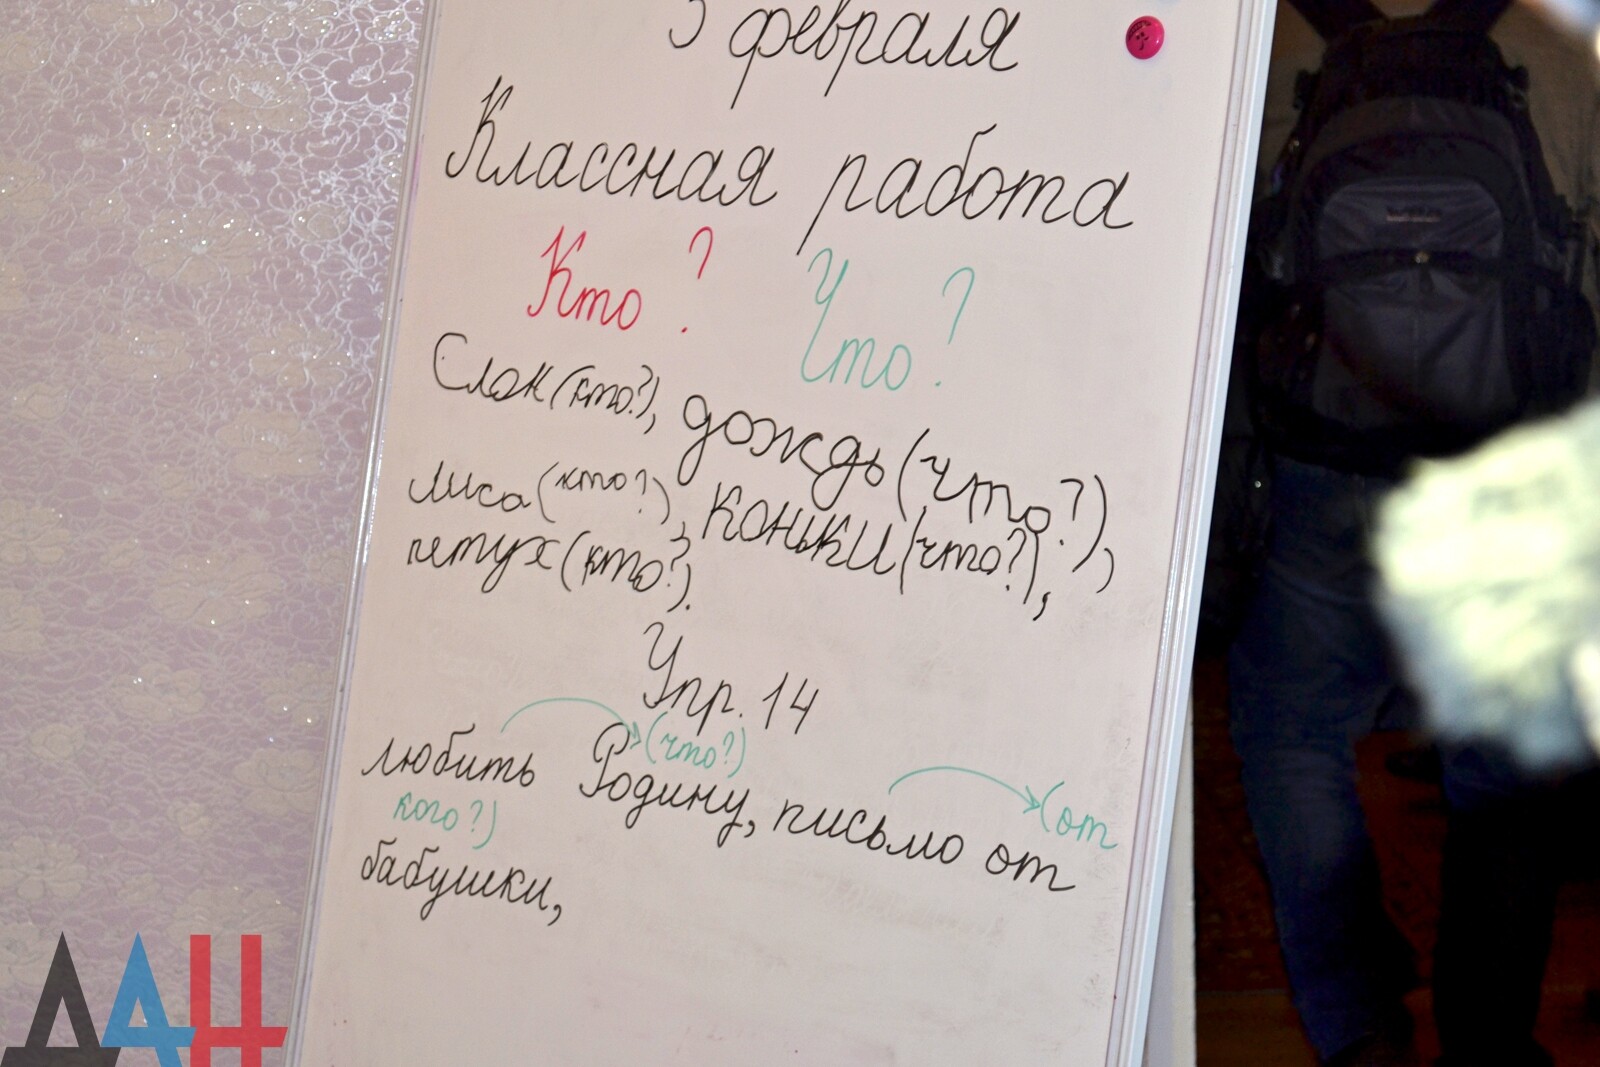 февраля
Классная работа
Кто? Что?
Слон (кто?), дождь (что?),
лиса (кто?), коньки (что?),
петух (кто?).
Упр. 14
(что?)
любить Родину, письмо от
(от
кого?)
бабушки,
ДАН